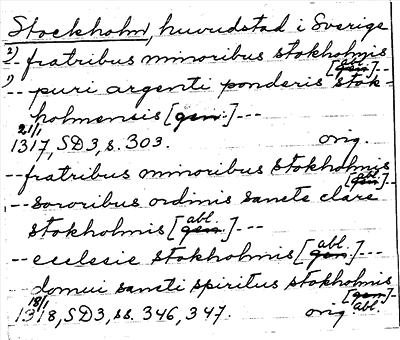 Stockholm, huvudstad i Sverige
2) -- fratribus minoribus stokholmis
[gen] abl. --
1) -- puri argenti ponderis stok-
holmensis [gen.] ---
21/1
1317, SD3, s. 303. orig.
-- fratribus minoribus stokholmis
[gen.] abl. --
-- sororibus ordinis sancte clare
abl.
stokholmis [gen.] ---
abl.
-- ecclesie stokholmis [gen.] ---
domui sancti spiritus stokholmis
[gen.] --
18/1 abl.
1318, SD3, ss. 346, 347. orig